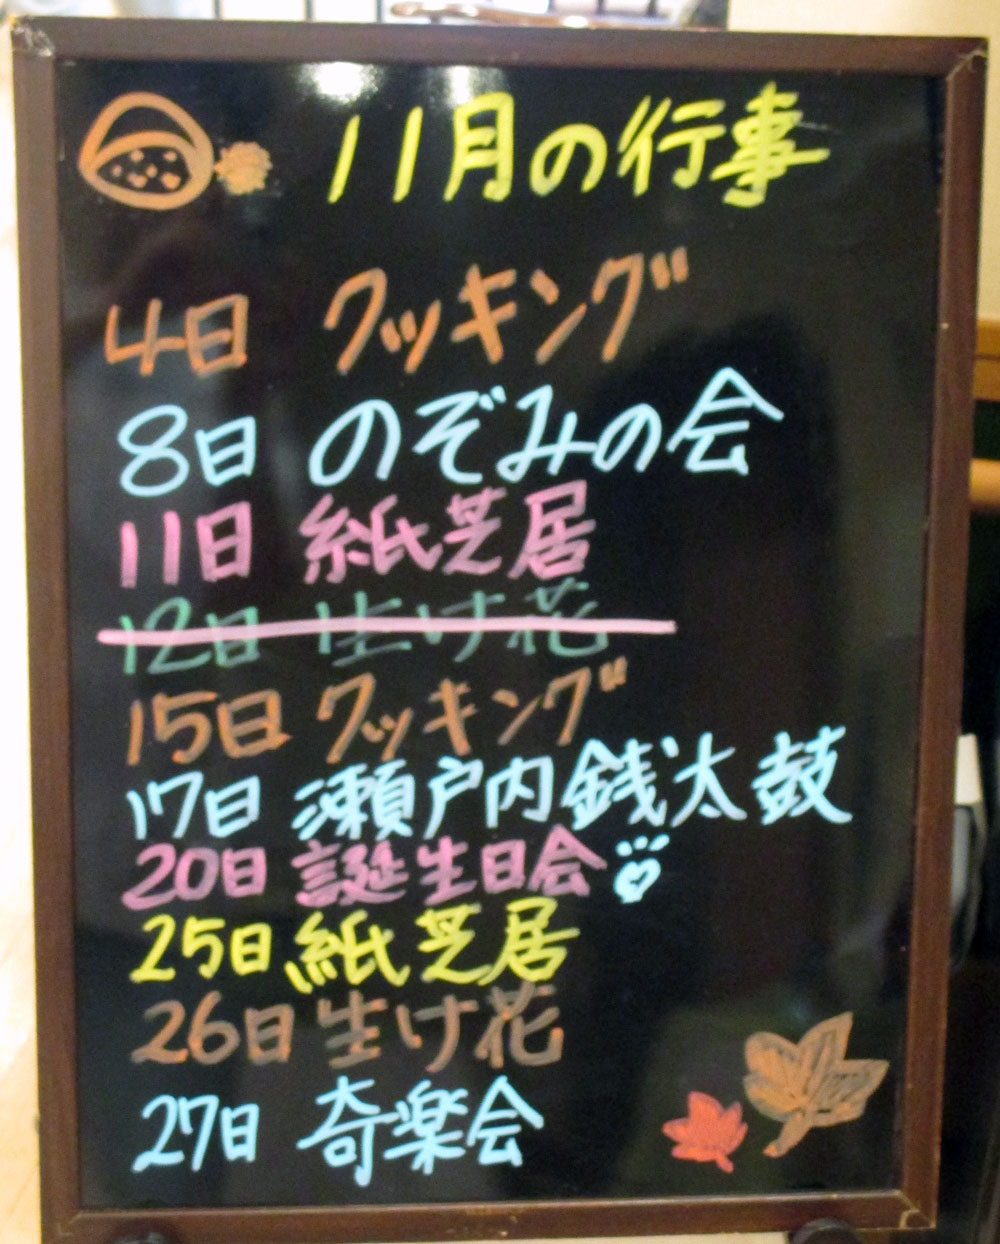 11月の行事
4日 クッキング
8日 のぞみの会
11日 紙芝居
12日 生け花
15日 クッキング
17日 瀬戸内銭太鼓
20日 誕生日会
25日 紙芝居
26日 生け花
27日 奇楽会